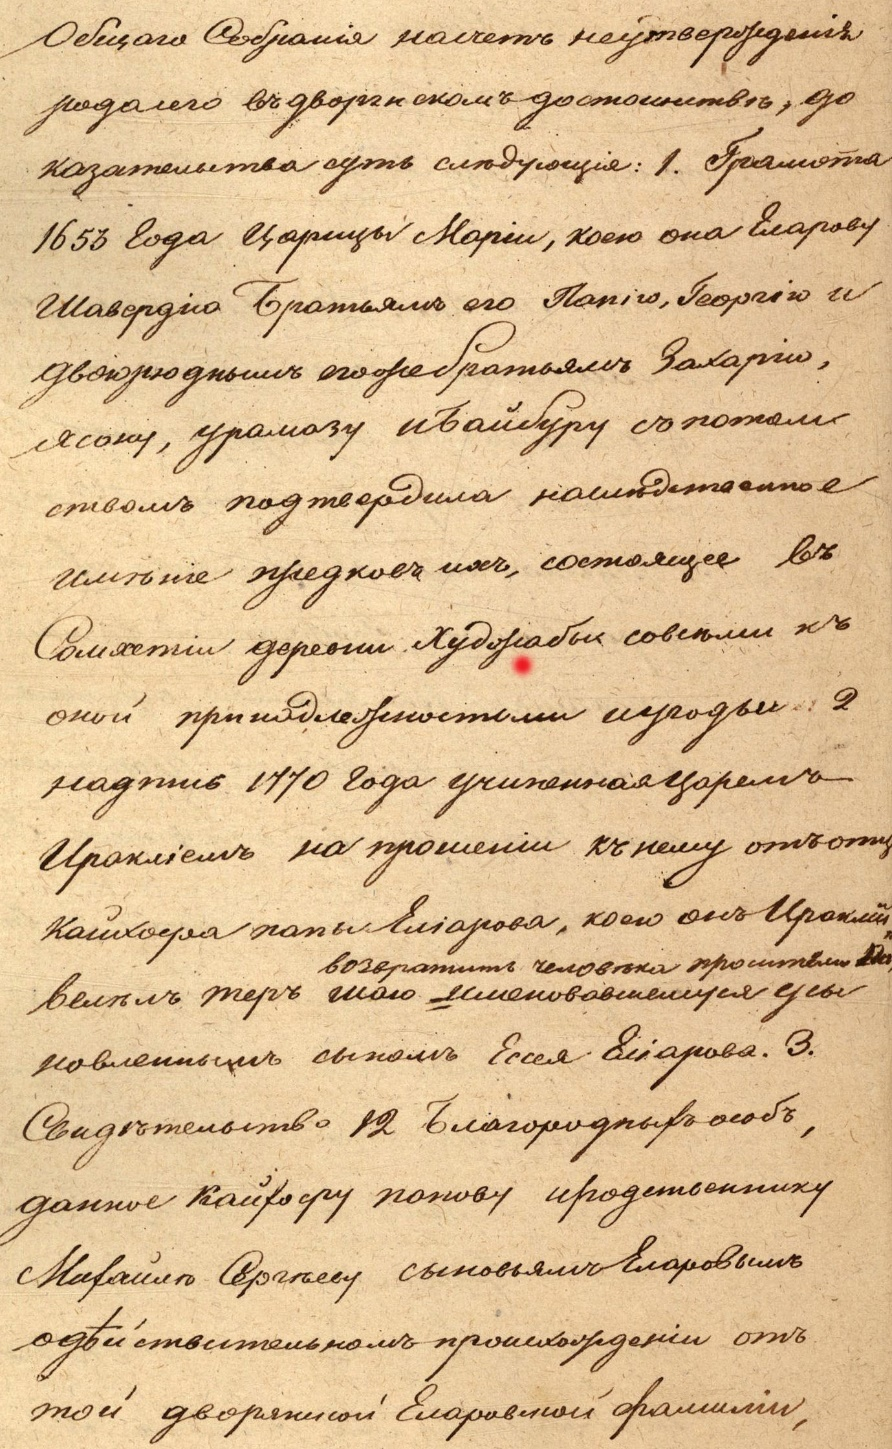 Общаго Собранія насчетъ неутвержденія
рода его въ дворянскомъ достоинствѣ, до
казательства суть слѣдующія: 1. Грамота
1653 Года Царицы Маріи, коею она Еларову
Шавердію Братьямъ его Папію, Георгію и
двоюроднымъ его же братьямъ Захарію,
Ясону, Урамазу и Байбуру съ потом
ствомъ подтвердила наслѣдственное
имѣніе предковъ ихъ, состоящее въ
Сомхетіи деревни Худжабы совсѣми къ
оной принадлежностьми и угодьи 2
надпись 1770 Года учиненная Царемъ
Иракліемъ на прошеніи къ нему отъ отца
Кайхосра папы Еліарова, коею онъ Ираклій
возвратить человѣка просителю
велѣлъ теръ шаю именовавшемуся усы
новленнымъ сыномъ Ессея Еліарова. 3.
Свидѣтельство 12 Благородныхъ особъ,
данное Кайхосру папову и родственнику
Михайлѣ Сергѣеву сыновьямъ Еларовымъ
о дѣйствительномъ происхожденіи отъ
той дворянской Еларовской фамиліи,